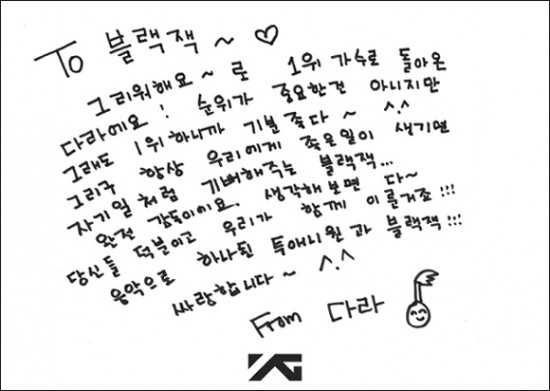 To 블랙잭 ~ ♡
그리워해요~ 로 1위 가수로 돌아온
다라에요! 순위가 중요한건 아니지만
그래도 1위하니까 기분 좋다~ ^.^
그리구 항상 우리에게 좋은일이 생기면
자기일처럼 기뻐해주는 블랙잭...
완전 감동이에요. 생각해보면 다~
당신들 덕분이고 우리가 함께 이룬거죠!!!
음악으로 하나된 투애니원과 블랙잭!!!
싸랑합니다~ ^.^
From 다라
YG